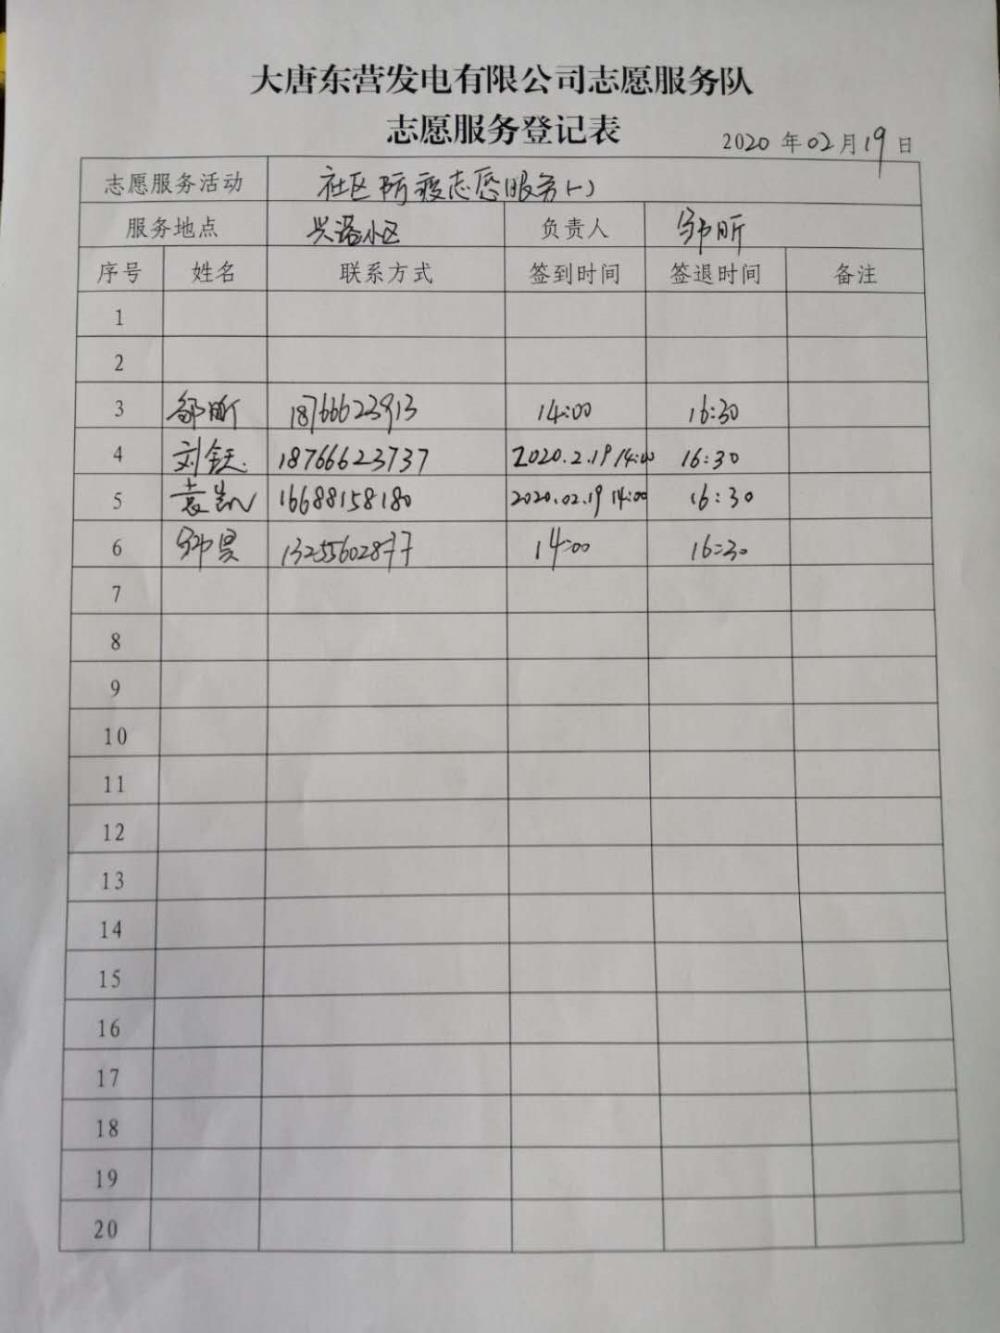 大唐东营发电有限公司志愿服务队
志愿服务登记表
2020年02月19日
志愿服务活动 社区防疫志愿服务(一)
服务地点 小区 负责人 邹昕
序号 姓名 联系方式 签到时间 签退时间 备注
1
2
3 邹昕 18766623913 14:00 16:30
4 刘 18766623737 2020.2.19 14:00 16:30
5 袁凯 16688158180 2020.02.19 14:00 16:30
6 邹昊 13255602877 14:00 16:30
7
8
9
10
11
12
13
14
15
16
17
18
19
20